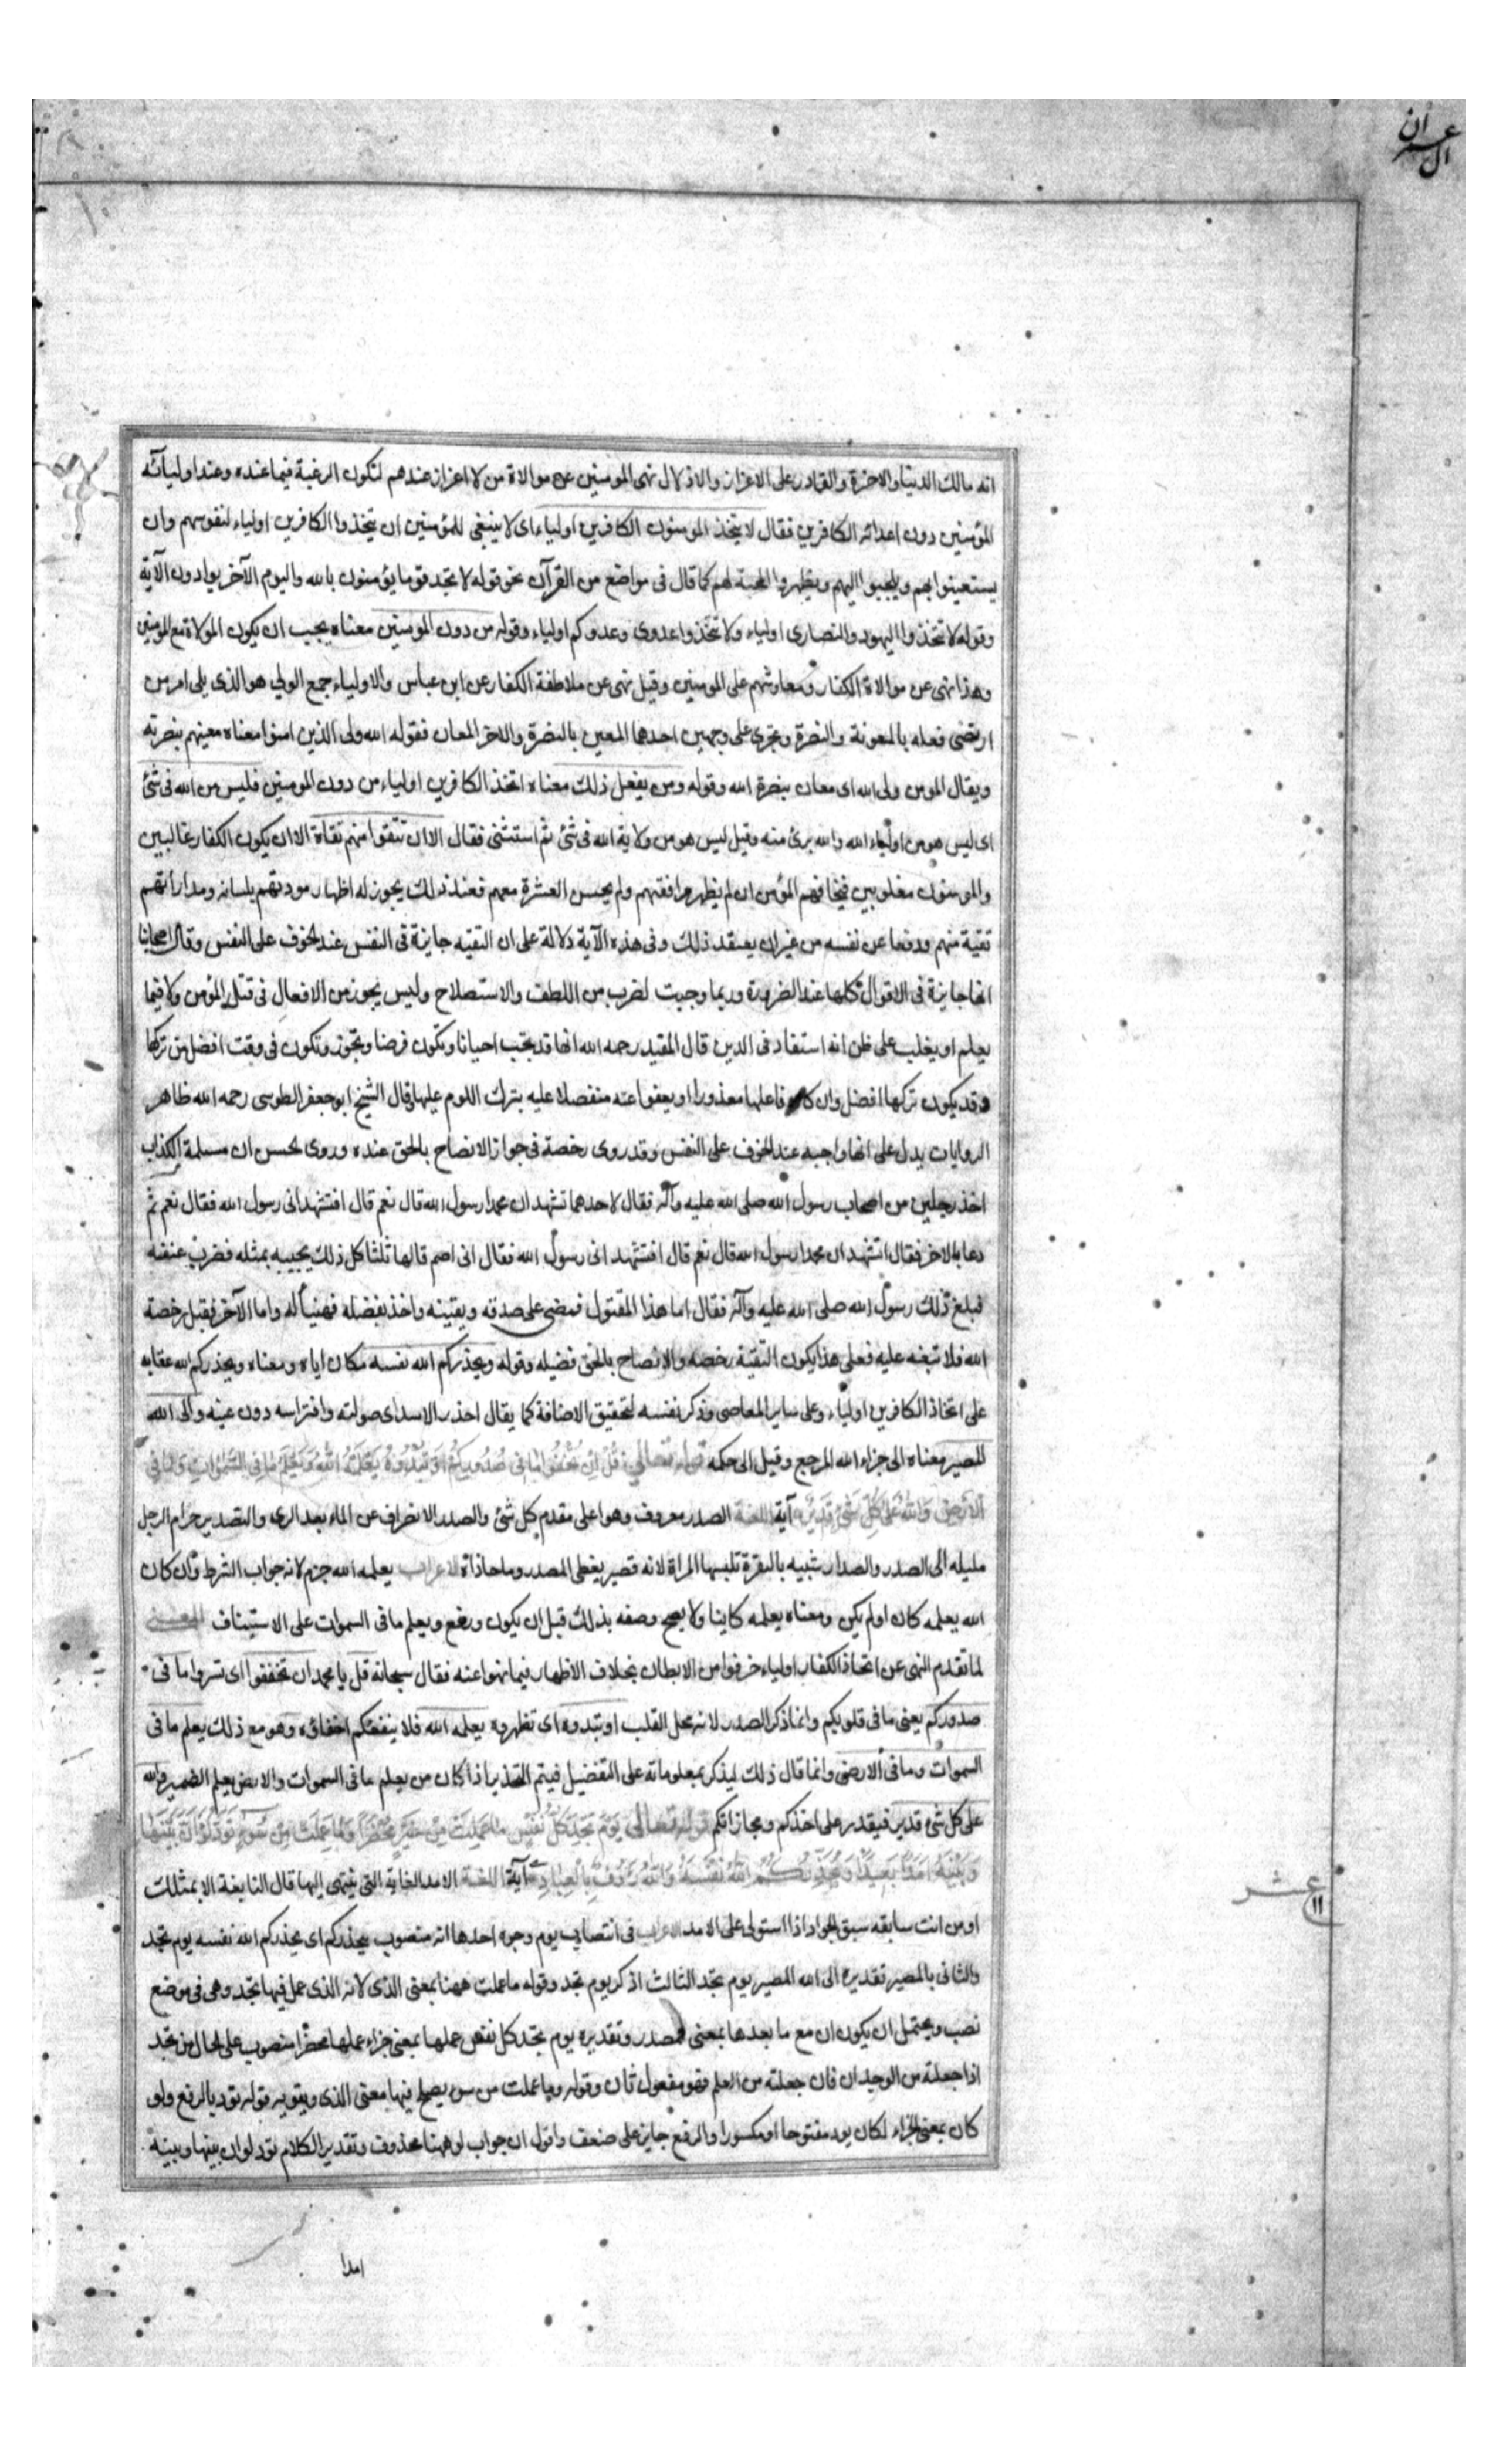 ال عمران
انه مالك الدنيا والاخرة والقادر على الاعزاز والاذلال نهى المومنين عن موالاة من لا اعزاز عندهم لتكون الرغبة فيما عنده وعند اوليائه
المؤمنين دون اعدائه الكافرين فقال لا يتخذ المومنون الكافرين اولياء اى لا ينبغى للمؤمنين ان يتخذوا الكافرين اولياء لنفوسهم وان
يستعينوا بهم ويلجوا اليهم ويظهروا المحبة لهم كما قال فى مواضع من القرآن نحو قوله لا تجد قوما يؤمنون بالله واليوم الآخر يوادون الآية
وقوله لا تتخذوا اليهود والنصارى اولياء ولا تتخذوا عدوى وعدوكم اولياء وقوله من دون المومنين معناه يجب ان يكون الموالاة مع المومنين
وهذا نهى عن موالاة الكفار ومعاونتهم على المومنين وقيل نهى عن ملاطفة الكفار عن ابن عباس والاولياء جمع الولى هو الذى يلى امر من
ارتضى فعله بالمعونة والنصرة ويجرى على وجهين احدهما المعين بالنصرة والاخر المعان فقوله الله ولى الذين امنوا معناه معينهم بنصرته
ويقال المومن ولى الله اى معان بنصرة الله وقوله ومن يفعل ذلك معناه اتخذ الكافرين اولياء من دون المومنين فليس من الله فى شئ
اى ليس هو من اولياء الله والله برئ منه وقيل ليس هو من ولاية الله فى شئ ثم استثنى فقال الا ان تتقوا منهم تقاة الا ان يكون الكفار غالبين
والمومنون مغلوبين فيخافهم المؤمن ان لم يظهر موافقتهم ولم يحسن العشرة معهم فعند ذلك يجوز له اظهار مودتهم بلسانه ومداراتهم
تقية منهم ودفعا عن نفسه من غير ان يعتقد ذلك وفى هذه الآية دلالة على ان التقيه جايزة فى النفس عند الخوف على النفس وقال اصحابنا
انها جايزة فى الاقوال كلها عند الضرورة وربما وجبت لضرب من اللطف والاستصلاح وليس يجوز من الافعال فى قتل المؤمن ولا فيما
يعلم او يغلب على ظن انه استفاد فى الدين قال المفيد رحمه الله انها قد يجب احيانا وتكون فرضا ويجوز وتكون فى وقت افضل من تركها
وقد يكون تركها افضل وان كان فاعلها معذورا او يعفوا عنه متفضلا عليه بترك اللوم عليها وقال الشيخ ابو جعفر الطوسى رحمه الله ظاهر
الروايات يدل على انها واجبه عند الخوف على النفس وقد روى رخصة فى جواز الافصاح بالحق عنده وروى الحسن ان مسيلمة الكذاب
اخذ رجلين من اصحاب رسول الله صلى الله عليه وآله فقال لاحدهما تشهد ان محمدا رسول الله قال نعم قال افتشهد انى رسول الله فقال نعم ثم
دعا بالاخر فقال اتشهد ان محمدا رسول الله قال نعم قال افتشهد انى رسول الله فقال انى اصم قالها ثلثا كل ذلك يجيبه بمثله فضرب عنقه
فبلغ ذلك رسول الله صلى الله عليه وآله فقال اما هذا المقتول فمضى على صدقه ويقينه واخذ بفضله فهنيأ له واما الآخر فقبل رخصة
الله فلا تبعة عليه فعلى هذا يكون التقية رخصه والافصاح بالحق فضيله وقوله ويحذركم الله نفسه مكان اياه ومعناه ويحذركم الله عقابه
على اتخاذ الكافرين اولياء وعلى ساير المعاصى وذكر نفسه لتحقيق الاضافة كما يقال احذر الاسد اى صولته وافتراسه دون عينه والى الله
المصير معناه الى جزاء الله المرجع وقيل الى حكمه قوله تعالى قُلْ اِنْ تُخْفُوا مَا فى صُدُورِكُمْ اَوْ تُبْدُوهُ يَعْلَمْهُ اللهُ وَيَعْلَمُ مَا فى السَّمٰوَاتِ وَمَا فى
الْاَرْضِ وَاللهُ عَلى كُلِّ شَئٍ قَدِيْرٌ آية اللغة الصدر معروف وهو اعلى مقدم كل شئ والصدر الانصراف عن الماء بعد الرى والتصدير حزام الرحل
مليله الى الصدر والصدار شبيه بالبقرة تلبسها المراة لانه قصير يغطى المصدر وما حاذاه الاعراب يعلمه الله جزم لانه جواب الشرط وان كان
الله يعلمه كان اولم يكن ومعناه يعلمه كاينا ولا يصح وصفه بذلك قبل ان يكون ورفع ويعلم ما فى السموات على الاستيناف المعنى
لما تقدم النهى عن اتخاذ الكفار اولياء خوفوا من الابطان بخلاف الاظهار فيما نهوا عنه فقال سبحانه قل يا محمد ان تخفوا اى تسروا ما فى
صدوركم يعنى ما فى قلوبكم وانما ذكر الصدر لانه محل القلب او تبدوه اى تظهروه يعلمه الله فلا ينفعكم اخفاؤه وهو مع ذلك يعلم ما فى
السموات وما فى الارض وانما قال ذلك ليذكر بمعلوماته على التفضيل فيتم التحذير اذا كان من يعلم ما فى السموات والارض يعلم الضمير والله
على كل شئ قدير فيقدر على اخذكم ومجازاتكم قوله تعالى يَوْمَ تَجِدُ كُلُّ نَفْسٍ مَا عَمِلَتْ مِنْ خَيْرٍ مُحْضَرًا وَمَا عَمِلَتْ مِنْ سُوءٍ تَوَدُّ لَوْ اَنَّ بَيْنَهَا
وَبَيْنَهُ اَمَدًا بَعِيدًا وَيُحَذِّرُكُمُ اللهُ نَفْسَهُ وَاللهُ رَؤُفٌ بِالْعِبَادِ آية اللغة الامد الغاية التى ينتهى اليها قال النابغة الا بمثلك
او من انت سابقه سبق الجواد اذا استولى على الامد الاعراب فى انتصاب يوم وجوه احدها انه منصوب بيحذركم اى يحذركم الله نفسه يوم تجد
والثانى بالمصير تقديره الى الله المصير يوم تجد الثالث اذكر يوم تجد وقوله ما عملت ههنا بمعنى الذى لانه الذى عمل فيها تجد وهى فى موضع
نصب ويحتمل ان يكون ان مع ما بعدها بمعنى المصدر وتقديره يوم تجد كل نفس عملها بمعنى جزاء عملها محضرا منصوب على الحال من تجد
اذا جعلته من الوجدان فان جعلته من العلم فهو مفعول ثان وقوله وما عملت من سوء يصلح فيها معنى الذى ويقويه قوله تود بالرفع ولو
كان بمعنى الجزاء لكان يود مفتوحا او مكسورا والرفع جايز على ضعف واقول ان جواب لو ههنا محذوف وتقدير الكلام تود لو ان بينها وبينه
عشر
١١
امدا